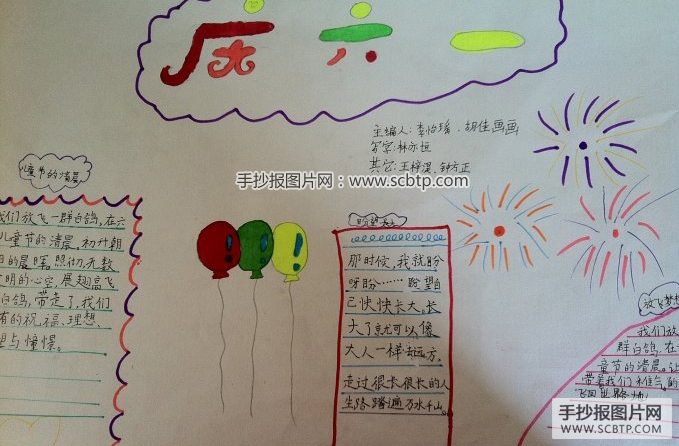 庆六一
主编人:李怡瑶、胡佳画画
写字:林亦恒
其它:王梓涵、钟方正
手抄报图片网:www.scbtp.com
儿童节的清晨
我们放飞一群白鸽,在六
儿童节的清晨,初升朝
日的晨晖,照彻无数
明的心空,展翅高飞
白鸽,带走了,我们
有的祝福、理想、
望与憧憬。
盼望
那时候,我就盼
呀盼……盼望自
己快快长大。长
大了就可以像
大人一样去远方。
走过很长很长的人
生路踏遍万水千山。
放飞梦想
我们放
群白鸽,在
童节的清晨。让
带着我们
手抄报图片网
SCBTP.COM